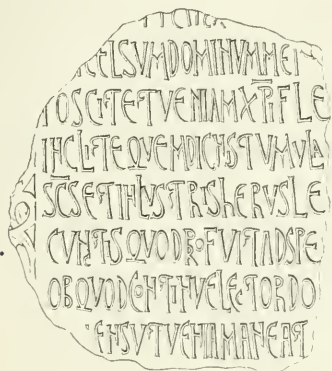 CELSVMDOMINVMMEI
POSCITETVENIAMXPIFLE
INCLITEQVEMDICNSTVMVLA
SCSETINLVSTRISHERVSLE
CVNTISQVODPROFVITADSPE
OBQVODCONTINVELECTORDO
ENSVTVENIAMANEAT